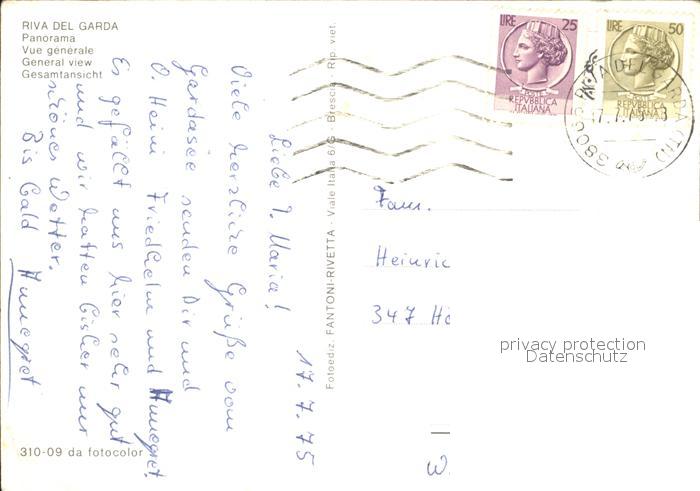 RIVA DEL GARDA
Panorama
Vue générale
General view
Gesamtansicht
17.7.75
Liebe T. Maria!
Viele herzliche Grüße vom
Gardasee senden Dir und
O. Heini Friedhelm und Annegret.
Es gefällt uns hier sehr gut
und wir hatten bisher nur
schönes Wetter.
Bis bald Annegret
310-09 da fotocolor
Fotoediz. FANTONI-RIVETTA - Viale Italia 6/G - Brescia - Rip. viet.
LIRE 25
POSTE
REPVBBLICA
ITALIANA
LIRE 50
REPVBBLICA
ITALIANA
38066
Fam.
Heinric
347 Hö
W.
privacy protection
Datenschutz